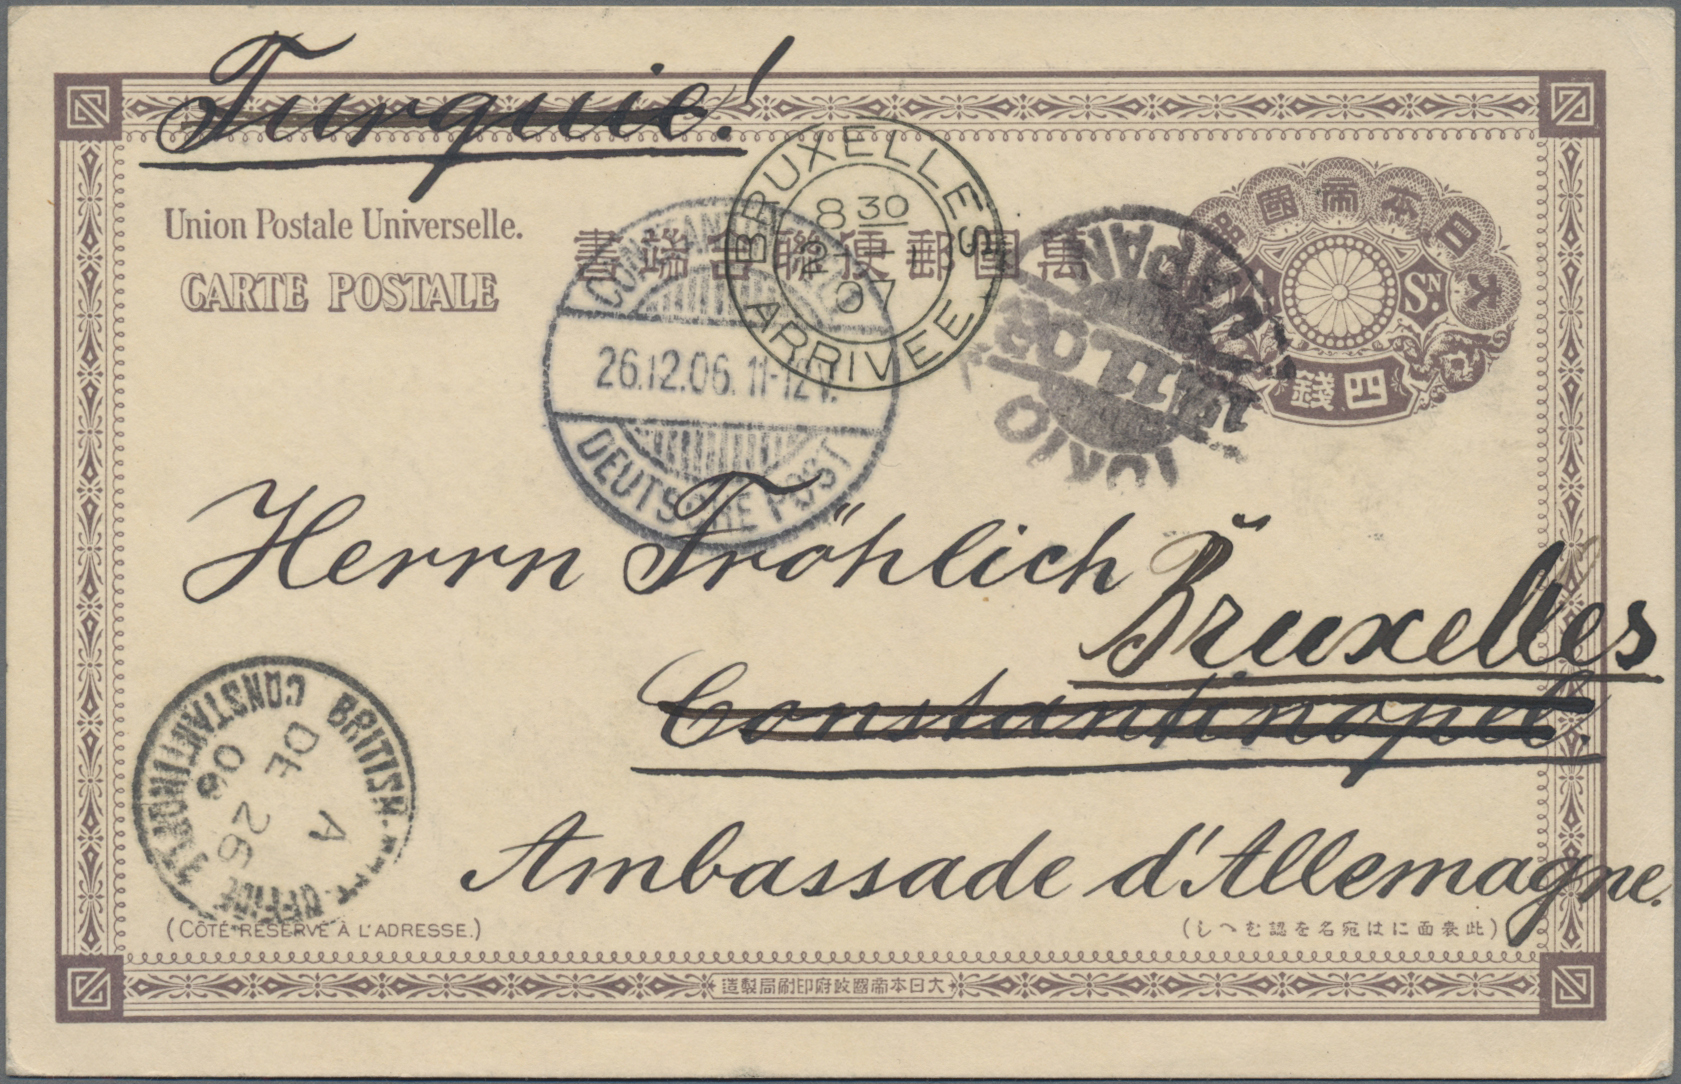 Turquie!
Union Postale Universelle.
CARTE POSTALE
書端合聯便郵國萬
大日本帝國郵
SN
四錢
BRUXELLES
8 30
1
07
ARRIVEE
26.12.06. 11-12
DEUTSCHE POST
JAPAN
TOKIO
Herrn Fröhlich
Bruxelles
Constantinopel.
Ambassade d'Allemagne.
BRITISH OFFICE CONSTANTINOPLE
A
DE 26
06
(CÔTÉ RÉSERVÉ À L'ADRESSE.)
(此表面には宛名を認むへし)
大日本帝國政府印刷局製造